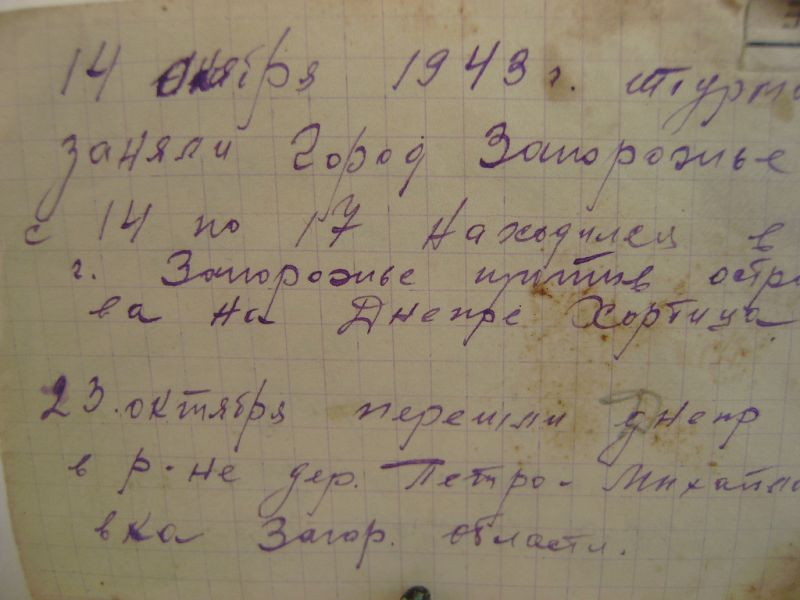 14 октября 1943 г. штурмо
заняли Город Запорожье
с 14 по 17 находился в
г. Запорожье против остро
ва на Днепре Хортица
23. октября перешли днепр
в р-не дер. Петро-Михайло
вка Запор. области.